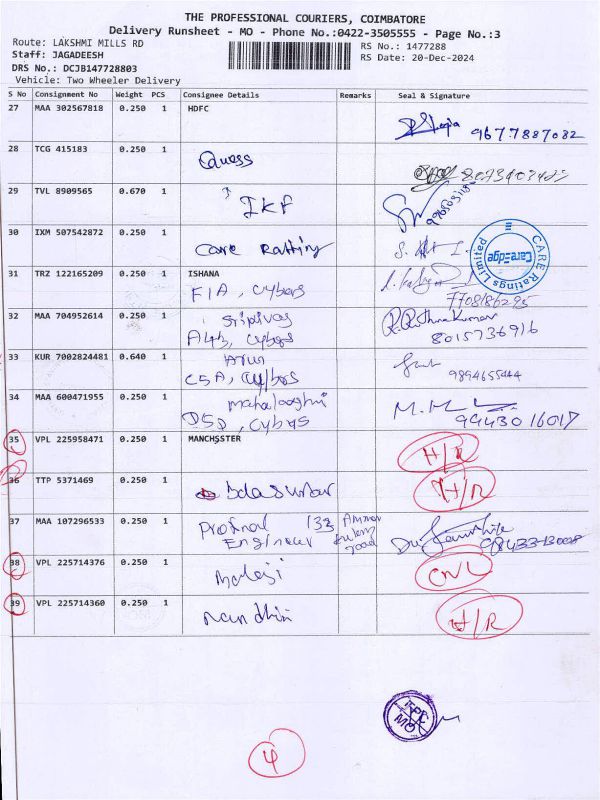 THE PROFESSIONAL COURIERS, COIMBATORE
Delivery Runsheet - MO - Phone No.:0422-3505555 - Page No.:3
Route: LAKSHMI MILLS RD
RS No.: 1477288
Staff: JAGADEESH
RS Date: 20-Dec-2024
DRS No.: DCJB147728803
Vehicle: Two Wheeler Delivery
S No Consignment No Weight PCS Consignee Details Remarks Seal & Signature
27 MAA 302567818 0.250 1 HDFC
9677887082
28 TCG 415183 0.250 1 Quess
29 TVL 8909565 0.670 1 IKF
30 IXM 507542872 0.250 1 Care Ratting
CARE Ratings Limited
CareEdge
31 TRZ 122165209 0.250 1 ISHANA
FIA, Cybers
7708186295
32 MAA 704952614 0.250 1 Srinivas
A4B, Cybers
R.Rathna Kumar
8015736916
33 KUR 7002824481 0.640 1 Arun
C5A, Cybers
9894655444
34 MAA 600471955 0.250 1 Mahalaxmi
D5D, Cybers
99430 16017
35 VPL 225958471 0.250 1 MANCHSSTER H/R
36 TTP 5371469 0.250 1 H/R
37 MAA 107296533 0.250 1 133
Engineer
road
98433-13008
38 VPL 225714376 0.250 1 Balaji CNL
39 VPL 225714360 0.250 1 Nandhini H/R
TPC
MO
4